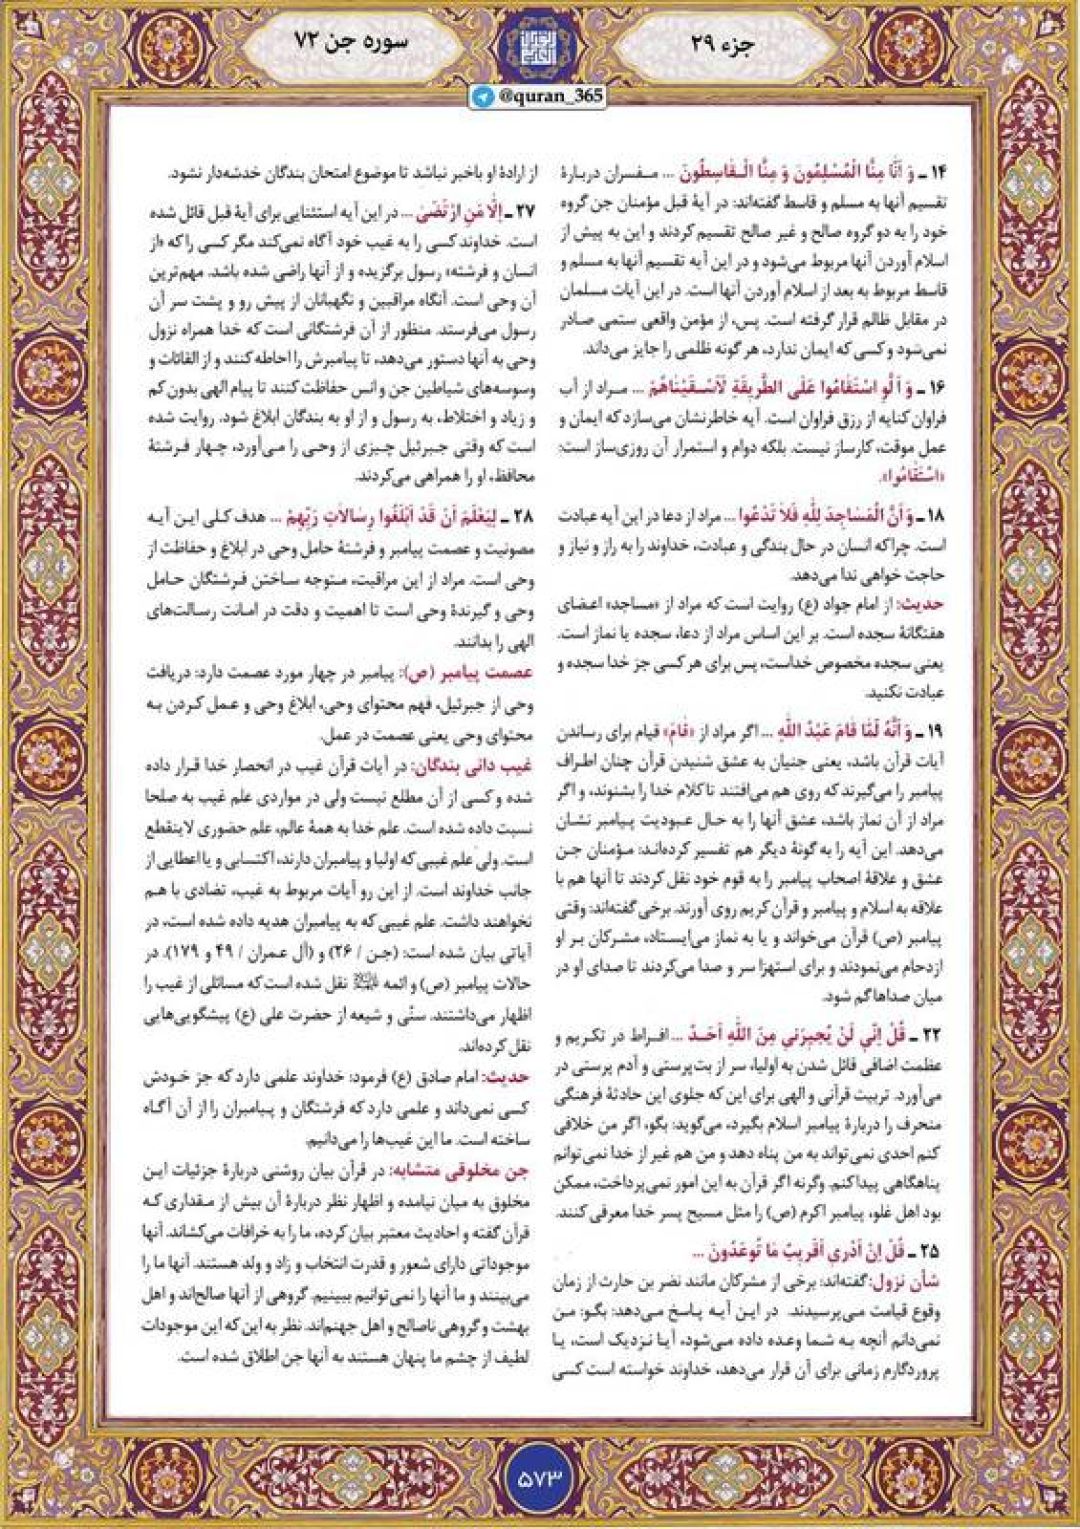 جزء ۲۹
سوره جن ۷۲
@quran_365
۱۴ ـ وَ أَنَّا مِنَّا الْمُسْلِمُونَ وَ مِنَّا الْقَاسِطُونَ ... مفسران دربارهٔ
تقسیم آنها به مسلم و قاسط گفته‌اند: در آیهٔ قبل مؤمنان جن گروه
خود را به دو گروه صالح و غیر صالح تقسیم کردند و این به پیش از
اسلام آوردن آنها مربوط می‌شود و در این آیه تقسیم آنها به مسلم و
قاسط مربوط به بعد از اسلام آوردن آنها است. در این آیات مسلمان
در مقابل ظالم قرار گرفته است. پس، از مؤمن واقعی ستمی صادر
نمی‌شود و کسی که ایمان ندارد، هر گونه ظلمی را جایز می‌داند.
۱۶ ـ وَ أَلَّوِ اسْتَقَامُوا عَلَى الطَّرِیقَةِ لَأَسْقَیْنَاهُمْ ... مراد از آب
فراوان کنایه از رزق فراوان است. آیه خاطرنشان می‌سازد که ایمان و
عمل موقت، کارساز نیست. بلکه دوام و استمرار آن روزی‌ساز است:
«اسْتَقَامُوا».
۱۸ ـ وَ أَنَّ الْمَسَاجِدَ لِلَّهِ فَلَا تَدْعُوا ... مراد از دعا در این آیه عبادت
است. چراکه انسان در حال بندگی و عبادت، خداوند را به راز و نیاز و
حاجت خواهی ندا می‌دهد.
حدیث: از امام جواد (ع) روایت است که مراد از «مساجد» اعضای
هفتگانهٔ سجده است. بر این اساس مراد از دعا، سجده یا نماز است.
یعنی سجده مخصوص خداست، پس برای هر کسی جز خدا سجده و
عبادت نکنید.
۱۹ ـ وَ أَنَّهُ لَمَّا قَامَ عَبْدُ اللَّهِ ... اگر مراد از «قَامَ» قیام برای رساندن
آیات قرآن باشد، یعنی جنیان به عشق شنیدن قرآن چنان اطراف
پیامبر را می‌گیرند که روی هم می‌افتند تا کلام خدا را بشنوند، و اگر
مراد از آن نماز باشد، عشق آنها را به حال عبودیت پیامبر نشان
می‌دهد. این آیه را به گونهٔ دیگر هم تفسیر کرده‌اند: مؤمنان جن
عشق و علاقهٔ اصحاب پیامبر را به قوم خود نقل کردند تا آنها هم با
علاقه به اسلام و پیامبر و قرآن کریم روی آورند. برخی گفته‌اند: وقتی
پیامبر (ص) قرآن می‌خواند و یا به نماز می‌ایستاد، مشرکان بر او
ازدحام می‌نمودند و برای استهزا سر و صدا می‌کردند تا صدای او در
میان صداها گم شود.
۲۲ ـ قُلْ إِنِّی لَنْ یُجِیرَنِی مِنَ اللَّهِ أَحَدٌ ... افراط در تکریم و
عظمت اضافی قائل شدن به اولیا، سر از بت‌پرستی و آدم پرستی در
می‌آورد. تربیت قرآنی و الهی برای این که جلوی این حادثهٔ فرهنگی
منحرف را دربارهٔ پیامبر اسلام بگیرد، می‌گوید: بگو، اگر من خلافی
کنم احدی نمی‌تواند به من پناه دهد و من هم غیر از خدا نمی‌توانم
پناهگاهی پیدا کنم. وگرنه اگر قرآن به این امور نمی‌پرداخت، ممکن
بود اهل غلو، پیامبر اکرم (ص) را مثل مسیح پسر خدا معرفی کنند.
۲۵ ـ قُلْ إِنْ أَدْرِی أَقَرِیبٌ مَا تُوعَدُونَ ...
شأن نزول: گفته‌اند: برخی از مشرکان مانند نضر بن حارث از زمان
وقوع قیامت می‌پرسیدند. در این آیه پاسخ می‌دهد: بگو: من
نمی‌دانم آنچه به شما وعده داده می‌شود، آیا نزدیک است، یا
پروردگارم زمانی برای آن قرار می‌دهد، خداوند خواسته است کسی
از ارادهٔ او باخبر نباشد تا موضوع امتحان بندگان خدشه‌دار نشود.
۲۷ ـ إِلَّا مَنِ ارْتَضَى ... در این آیه استثنایی برای آیهٔ قبل قائل شده
است. خداوند کسی را به غیب خود آگاه نمی‌کند مگر کسی را که «از
انسان و فرشته» رسول برگزیده و از آنها راضی شده باشد. مهم‌ترین
آن وحی است. آنگاه مراقبین و نگهبانان از پیش رو و پشت سر آن
رسول می‌فرستد. منظور از آن فرشتگانی است که خدا همراه نزول
وحی به آنها دستور می‌دهد، تا پیامبرش را احاطه کنند و از القائات و
وسوسه‌های شیاطین جن و انس حفاظت کنند تا پیام الهی بدون کم
و زیاد و اختلاط، به رسول و از او به بندگان ابلاغ شود. روایت شده
است که وقتی جبرئیل چیزی از وحی را می‌آورد، چهار فرشتهٔ
محافظ، او را همراهی می‌کردند.
۲۸ ـ لِیَعْلَمَ أَنْ قَدْ أَبْلَغُوا رِسَالَاتِ رَبِّهِمْ ... هدف کلی این آیه
مصونیت و عصمت پیامبر و فرشتهٔ حامل وحی در ابلاغ و حفاظت از
وحی است. مراد از این مراقبت، متوجه ساختن فرشتگان حامل
وحی و گیرندهٔ وحی است تا اهمیت و دقت در امانت رسالت‌های
الهی را بدانند.
عصمت پیامبر (ص): پیامبر در چهار مورد عصمت دارد: دریافت
وحی از جبرئیل، فهم محتوای وحی، ابلاغ وحی و عمل کردن به
محتوای وحی یعنی عصمت در عمل.
غیب دانی بندگان: در آیات قرآن غیب در انحصار خدا قرار داده
شده و کسی از آن مطلع نیست ولی در مواردی علم غیب به صلحا
نسبت داده شده است. علم خدا به همهٔ عالم، علم حضوری لاینقطع
است. ولی علم غیبی که اولیا و پیامبران دارند، اکتسابی و یا اعطایی از
جانب خداوند است. از این رو آیات مربوط به غیب، تضادی با هم
نخواهند داشت. علم غیبی که به پیامبران هدیه داده شده است، در
آیاتی بیان شده است: (جن / ۲۶) و (آل عمران / ۴۹ و ۱۷۹). در
حالات پیامبر (ص) و ائمه نقل شده است که مسائلی از غیب را
اظهار می‌داشتند. سنّی و شیعه از حضرت علی (ع) پیشگویی‌هایی
نقل کرده‌اند.
حدیث: امام صادق (ع) فرمود: خداوند علمی دارد که جز خودش
کسی نمی‌داند و علمی دارد که فرشتگان و پیامبران را از آن آگاه
ساخته است. ما این غیب‌ها را می‌دانیم.
جن مخلوقی متشابه: در قرآن بیان روشنی دربارهٔ جزئیات این
مخلوق به میان نیامده و اظهار نظر دربارهٔ آن بیش از مقداری که
قرآن گفته و احادیث معتبر بیان کرده، ما را به خرافات می‌کشاند. آنها
موجوداتی دارای شعور و قدرت انتخاب و زاد و ولد هستند. آنها ما را
می‌بینند و ما آنها را نمی‌توانیم ببینیم. گروهی از آنها صالح‌اند و اهل
بهشت و گروهی ناصالح و اهل جهنم‌اند. نظر به این که این موجودات
لطیف از چشم ما پنهان هستند به آنها جن اطلاق شده است.
۵۷۳